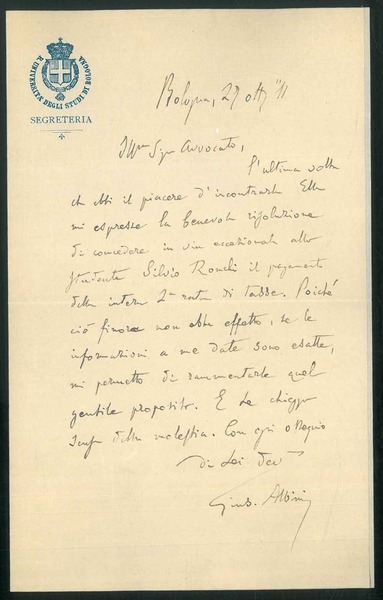 R. UNIVERSITÀ DEGLI STUDI DI BOLOGNA
SEGRETERIA
Bologna, 27 ott. '11
Ill.mo Sign. Avvocato,
l'ultima volta
ch'ebbi il piacere d'incontrarla Ella
mi espresse la benevola risoluzione
di concedere in via eccezionale allo
studente Silvio Ronchi il pagamento
della intera 2ª rata di tasse. Poiché
ciò finora non ebbe effetto, se le
informazioni a me date sono esatte,
mi permetto di rammentarle quel
gentile proposito. E Le chieggo
scusa della molestia. Con ogni ossequio
di Lei dev.
Gius. Albini